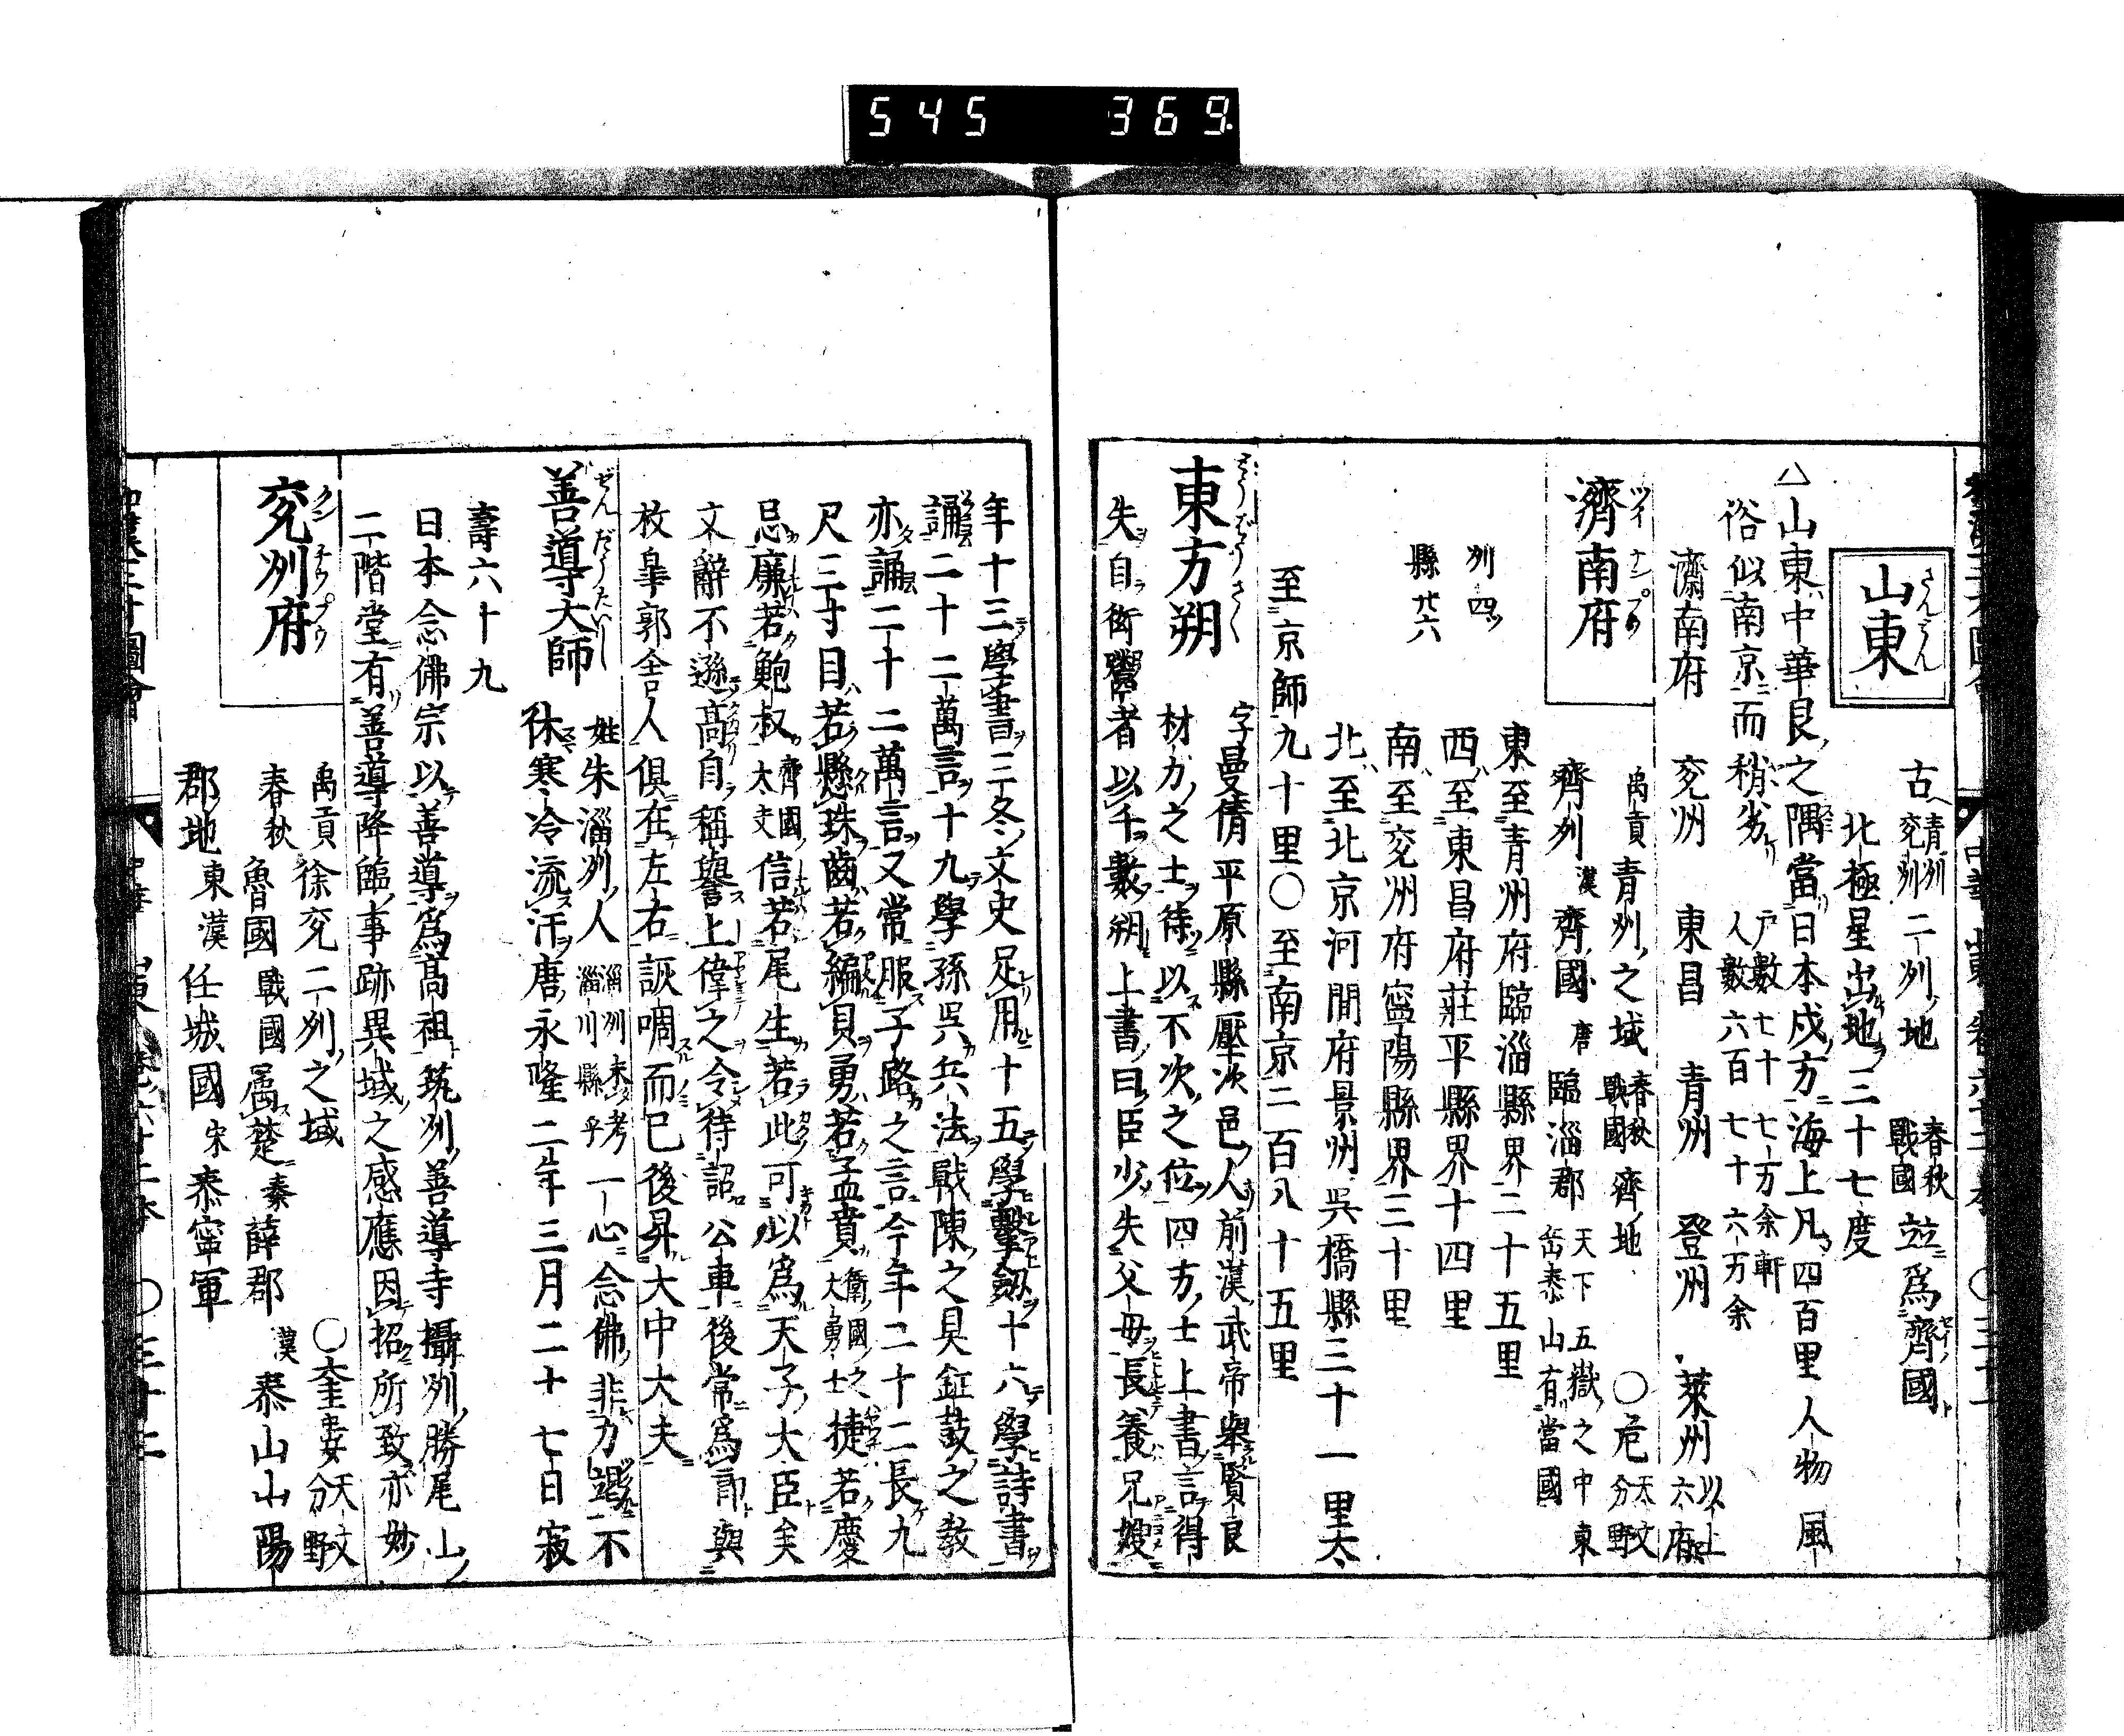 545 369
山東
古青州兗州二州ノ地 春秋戰國並爲齊國
北極星出地三十七度
△山東ハ中華艮之隅當日本戌方海上凡四百里人物風
俗似南京而稍劣 戸數七十七万余軒人數六百七十六万余
濟南府 兗州 東昌 青州 登州 萊州 以上六府
濟南府
禹貢青州ノ之域 春秋戰國齊ノ地 ○危 天文分野
齊州 漢齊國 唐臨淄郡 天下五嶽ノ之中東岳泰山有當國
東至青州府臨淄縣界二十五里
州四ツ
西至東昌府莊平縣界十四里
縣廿六
南至兗州府寧陽縣界三十里
北至北京河間府景州呉橋縣三十一里大
至京師九十里○至南京二百八十五里
東方朔
字曼倩平原縣壓次邑ノ人前漢武帝舉賢良
材力之士待以不次之位四方ノ士上書言得
失自衒鬻者以千數朔上書曰臣少失父母長養兄嫂
年十三學書三冬文史足用十五學擊劔十六學詩書
誦二十二萬言十九學孫呉兵法戰陳之具鉦鼓之敎
亦誦二十二萬言又常服子路之言今年二十二長九
尺三寸目若懸珠齒若編貝勇若孟賁 衛國之大勇士 捷若慶
忌廉若鮑叔 齊國大夫 信若尾生若此可以爲天子ノ大臣矣
文辭不遜高自稱譽上偉之令待詔公車後常爲郎與
枚皐郭舍人俱在左右詼啁而已後昇大中大夫
善導大師
姓朱淄州人 淄州未考淄川縣乎 一心念佛非力竭不
休寒冷流汗唐永隆二年三月二十七日寂
壽六十九
日本念佛宗以善導爲高祖筑州善導寺攝州勝尾山
二階堂有善導降臨事跡異域之感應因招所致亦妙
兗州府
禹貢徐兗二州ノ之域 ○奎婁 天文分野
春秋魯國 戰國属楚 秦薛郡 漢泰山山陽
郡ノ地 東漢任城國 宋泰寧軍